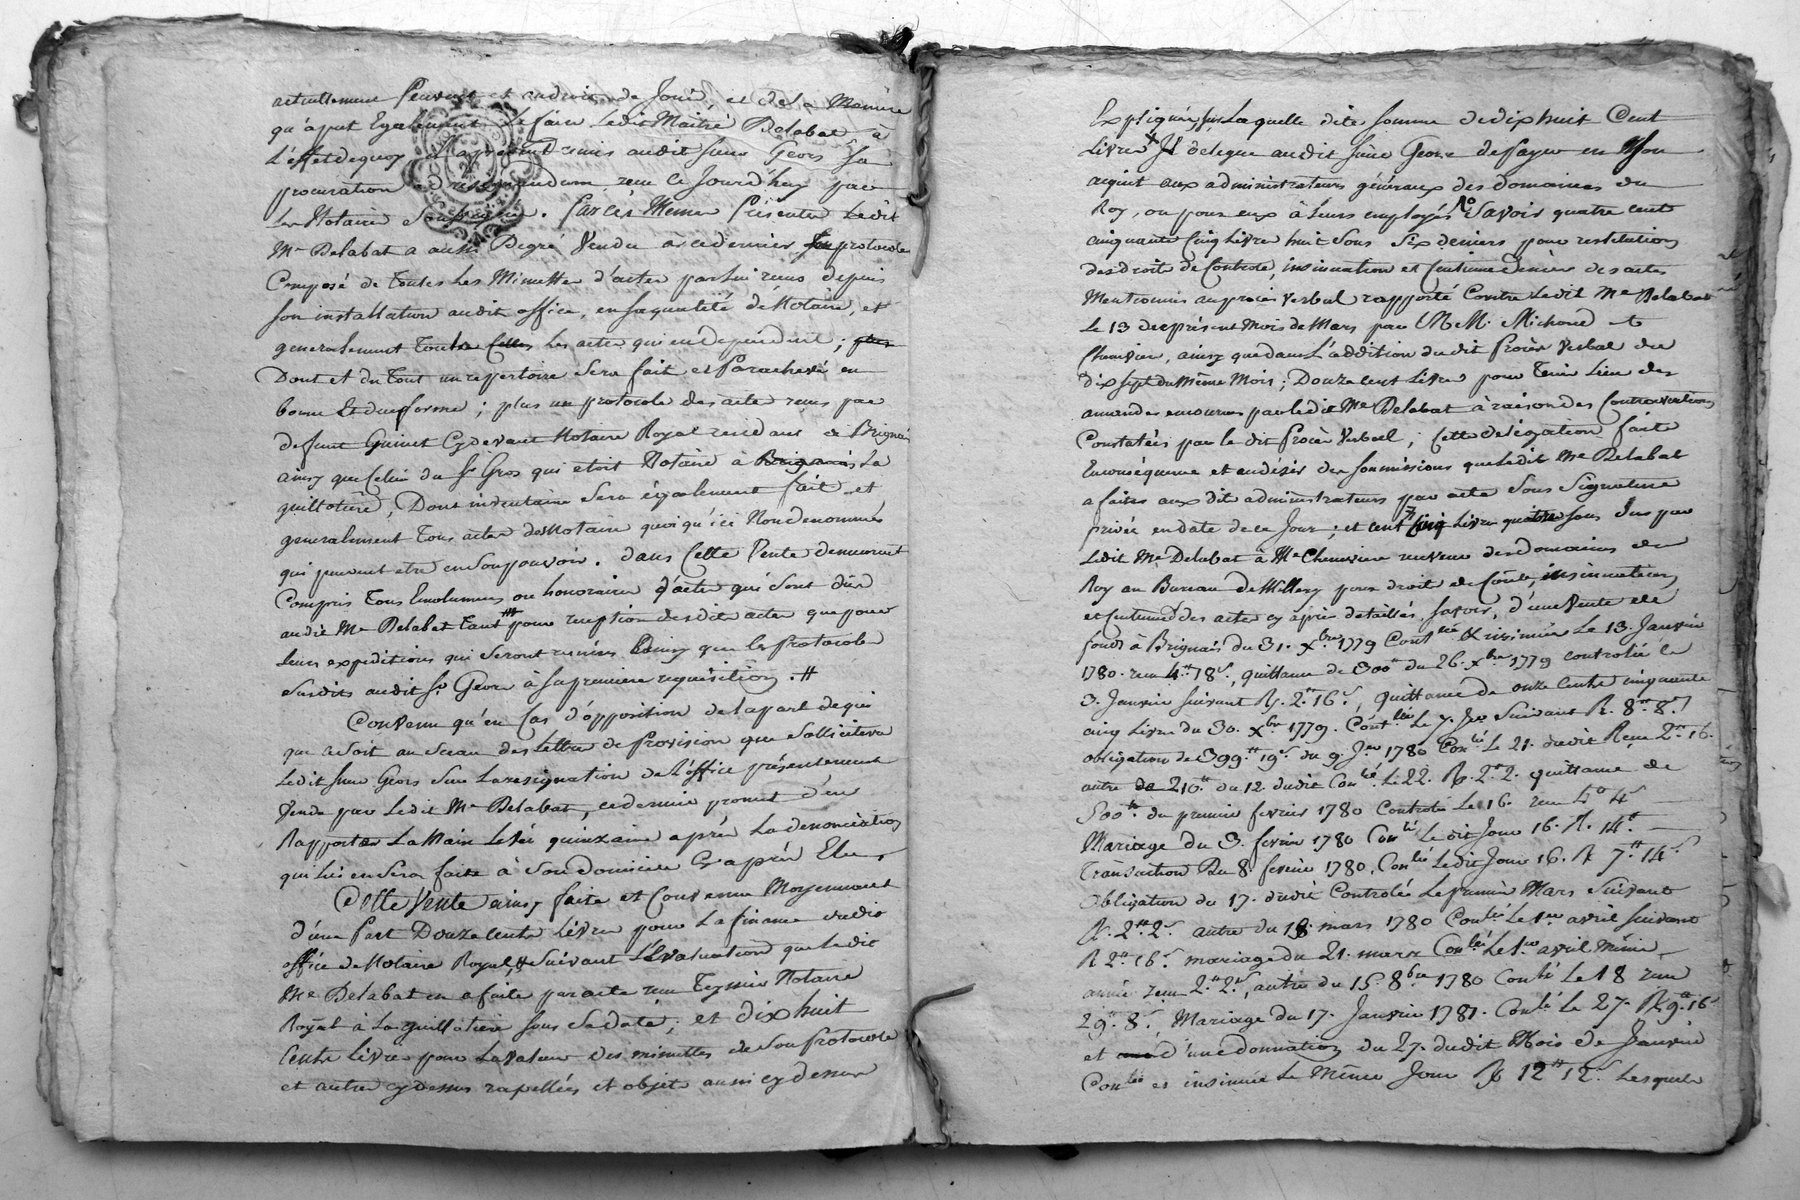 actuellement Peuvent et endroit de Jouir, et de la Maniere
qu'a put Egalement Le faire Ledit Maitre Delabat à
L'effet de quoy il a presentement remis audit sieur Geors sa
procuration ad resignandum, recu ce Jourd'huy par
Les Notaires Soussignés. Par ces Memes Presentes Ledit
Me Delabat a aussi Degré Vendu à ce dernier Son protocole
Composé de Toutes Les Minuttes d'actes par Lui recus depuis
son installation audit office, en sa qualité de Notaire, et
generalement Toutes Celles Les actes qui en dependent; plus
Dont et du Tout un repertoire Sera fait et Parachevé en
bonne et due forme; plus un protocole des actes recus par
defunt Guinet Cydevant Notaire Royal residant à Brignais
ainsy que Celui du Sr Gros qui etoit Notaire à Brignais La
guillotiere, Dont inventaire Sera également fait et
generalement Tous actes de Notaire quoi qu'ici Non denommés
qui peuvent etre en son pouvoir. dans Cette Vente demeurent
Compris Tous Emolumens ou honoraires d'actes qui sont dus
audit Me Delabat tant pour reception desdits actes que pour
leurs expeditions qui seront remises Ainsy que les Protocoles
susdits audit Sr Geors à sa premiere requisition. #
Convenu qu'en Cas d'opposition de la part de qui
que ce soit au Sceau des Lettres de Provision que Sollicitera
Ledit sieur Geors sur La resignation de L'office présentement
Vendu par Ledit Me Delabat, ce dernier promet d'en
Rapporter La Main Levée quinzaine après La denonciation
qui lui en Sera faite à Son domicile Cy après Elu,
Cette Vente ainsy faite et Convenue Moyennant
d'une Part Douze Cents Livres pour La finance dudit
office de Notaire Royal, # Suivant L'Evaluation que Ledit
Me Delabat en a faite par acte recu Notaire
Royal à La guillotiere sous Sa date; et dix huit
Cents Livres pour La valeur des minuttes de Son Protocole
et autres cy dessus rapellées et objets aussi cy dessus
Expliqués, sur Laquelle dite Somme de dix huit Cent
Livres Il délegue audit sieur Geors de Payer en Son
acquit aux administrateurs généraux des domaines du
Roy, ou pour eux à Leurs employés 1o Savoir quatre cent
cinquante Cinq Livres huit sous six deniers pour restitution
des droits de Controle, insinuation et Centieme denier des actes
Mentionnés au procès verbal rapporté Contre Ledit Me Delabat
Le 13 du présent mois de Mars par MM. Michoud et
Chenevier, ainsy que dans L'addition dudit Procès Verbal du
dix sept du Même Mois; Douze Cent Livres pour Tenir Lieu des
amendes encourues par Ledit Me Delabat à raison des Contraventions
Constatées par le dit Procès Verbal; Cette delégation faite
En conséquence et au désir des soumissions que Ledit Me Delabat
a faites aux dits administrateurs par acte sous Signature
privée en date de ce Jour; et cent Cinq Livres quatre sous Dus par
Ledit Me Delabat à Me Chenevier receveur des Domaines du
Roy au Bureau de Millery pour droit de Côntle, insinuation
et Centieme d. des actes cy après detaillés, savoir; d'une Vente de
fonds à Brignais du 31. Xbre 1779 Contlée & insinuée Le 13. Janvier
1780. recu 4# 18s, quittance de 300# du 26. Xbre 1779 controlée le
3. Janvier suivant R. 2# 16s, quittance de onze Cents cinquante
cinq Livres du 30. Xbre 1779. Contlée Le 7. Jer Suivant R. 8# 8s
obligation de 399# 19s du 9. Jer 1780 Conlé Le 21. dudit Reçu 2# 16.
autre de 210# du 12. dudit Conlé Le 22. R. 2# 2. quittance de
500# du premier fevrier 1780 Controlée Le 16. recu 4# 4s
Mariage du 3. fevrier 1780 Conlé Ledit Jour 16. R. 14#
Transaction Du 8 fevrier 1780, Conlé Ledit Jour 16. R 7# 14s
Obligation du 17. dudit Controlée Le premier Mars Suivant
R. 2# 2s autre du 18. mars 1780 Conlée Le 1er avril suivant
R 2# 16s mariage du 21. mars Conlé Le 1er avril même
année recu 2# 2s, autre du 15. 8bre 1780 Conlé Le 18 recu
29# 8s, Mariage du 17. Janvier 1781. Conlé Le 27. R 9# 16s
et d'une donnation du 27. dudit Mois de Janvier
Conlée et insinuée Le Même Jour R 12# 12s Lesquels